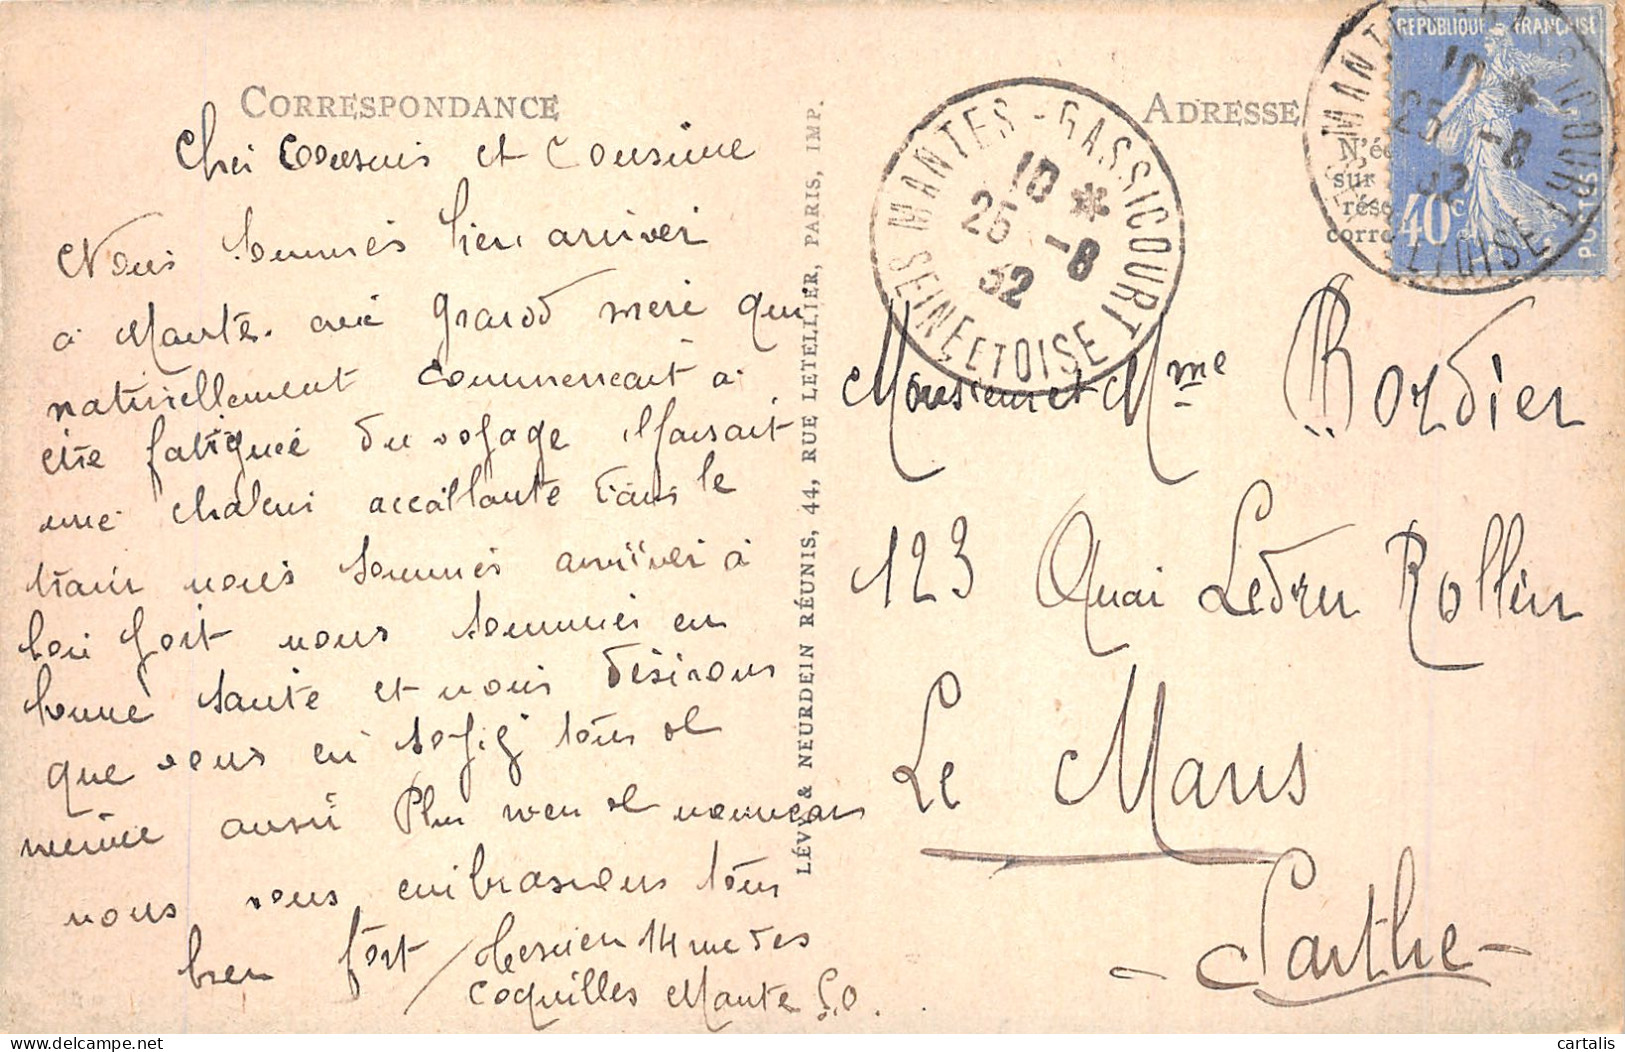 CORRESPONDANCE
Cher Cousins et Cousine
Nous sommes bien arriver
a Mante. avec grand mere qui
naturellement commencait a
etre fatiguée du voyage il faisait
une chaleur accallante dans le
train nous sommes arriver à
bon port nous sommes en
bonne santé et nous désirons
que vous en soyez tous de
même aussi Plus rien de nouveau
nous vous embrassons tous
bien fort 14 rue des
coquilles Mante S.O.
LÉVY & NEURDEIN RÉUNIS, 44, RUE LETELLIER, PARIS, IMP.
ADRESSE
N'éc
sur
rése
corre
MANTES-GASSICOURT
SEINE ET OISE
10 *
25 -8
32
REPUBLIQUE FRANÇAISE
40c
POSTES
MANTES-GASSICOURT
10 *
25 -8
32
Monsieur et Mme Bordier
123 Quai Ledru Rollin
Le Mans
- Sarthe -
delcampe.net
cartalis